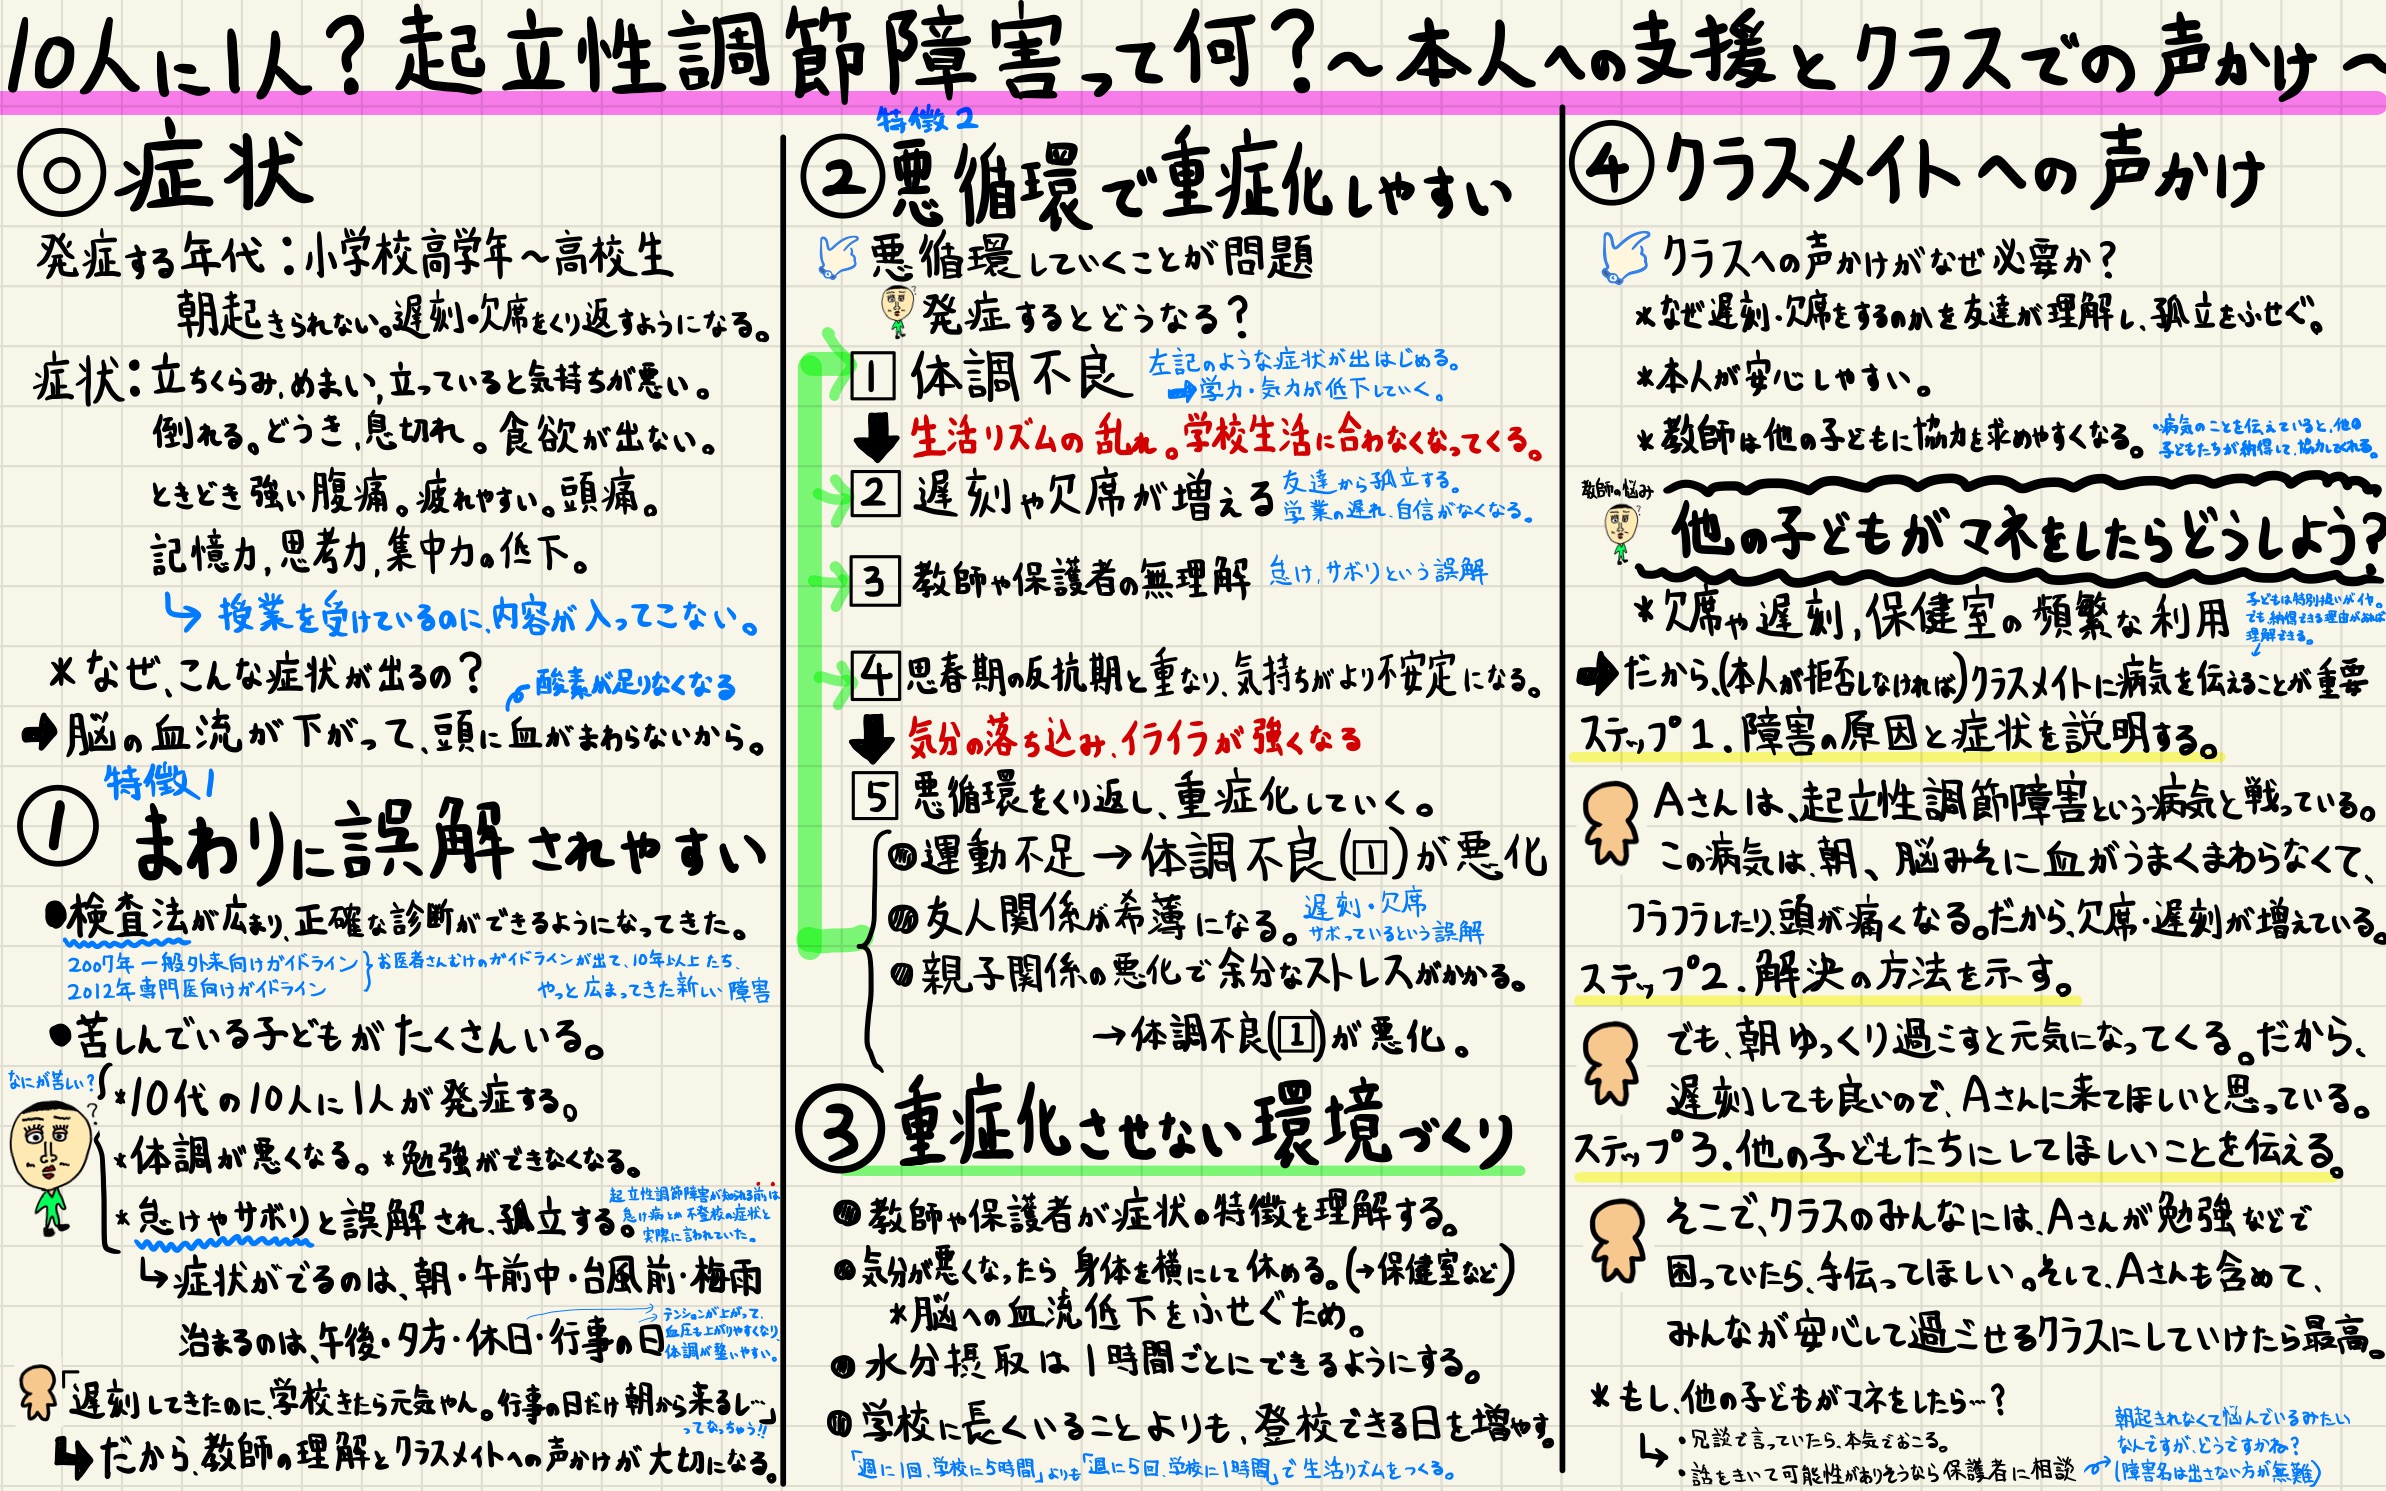 10人に1人？起立性調節障害って何？～本人への支援とクラスでの声かけ～
◎症状
発症する年代：小学校高学年～高校生
朝起きられない。遅刻・欠席をくり返すようになる。
症状：立ちくらみ、めまい、立っていると気持ちが悪い。
倒れる。どうき、息切れ。食欲が出ない。
ときどき強い腹痛。疲れやすい。頭痛。
記憶力、思考力、集中力の低下。
↳授業を受けているのに、内容が入ってこない。
＊なぜ、こんな症状が出るの？
酸素が足りなくなる
➡脳の血流が下がって、頭に血がまわらないから。
特徴1
①まわりに誤解されやすい
●検査法が広まり、正確な診断ができるようになってきた。
2007年 一般外来向けガイドライン
2012年 専門医向けガイドライン
お医者さんむけのガイドラインが出て、10年以上たち、
やっと広まってきた新しい障害
●苦しんでいる子どもがたくさんいる。
なにが苦しい？
＊10代の10人に1人が発症する。
＊体調が悪くなる。＊勉強ができなくなる。
＊怠けやサボりと誤解され、孤立する。
起立性調節障害が知られる前は
怠け病とか不登校の症状と
実際に言われていた。
↳症状がでるのは、朝・午前中・台風前・梅雨
治まるのは、午後・夕方・休日・行事の日
テンションが上がって、
血圧も上がりやすくなり、
体調が整いやすい。
「遅刻してきたのに、学校きたら元気やん。行事の日だけ朝から来るし…」
ってなっちゃう!!
↳だから、教師の理解とクラスメイトへの声かけが大切になる。
特徴2
②悪循環で重症化しやすい
悪循環していくことが問題
発症するとどうなる？
1 体調不良
左記のような症状が出はじめる。
➡学力・気力が低下していく。
⬇生活リズムの乱れ。学校生活に合わなくなってくる。
2 遅刻や欠席が増える
友達から孤立する。
学業の遅れ、自信がなくなる。
3 教師や保護者の無理解
怠け、サボりという誤解
4 思春期の反抗期と重なり、気持ちがより不安定になる。
⬇気分の落ち込み、イライラが強くなる
5 悪循環をくり返し、重症化していく。
●運動不足→体調不良(1)が悪化
●友人関係が希薄になる。
遅刻・欠席
サボっているという誤解
●親子関係の悪化で余分なストレスがかかる。
→体調不良(1)が悪化。
③重症化させない環境づくり
●教師や保護者が症状の特徴を理解する。
●気分が悪くなったら身体を横にして休める。(→保健室など)
＊脳への血流低下をふせぐため。
●水分摂取は1時間ごとにできるようにする。
●学校に長くいることよりも、登校できる日を増やす。
「週に1回、学校に5時間」よりも「週に5回、学校に1時間」で生活リズムをつくる。
④クラスメイトへの声かけ
クラスへの声かけがなぜ必要か？
＊なぜ遅刻・欠席をするのかを友達が理解し、孤立をふせぐ。
＊本人が安心しやすい。
＊教師は他の子どもに協力を求めやすくなる。
・病気のことを伝えていると、他の
子どもたちが納得して、協力してくれる。
教師の悩み
他の子どもがマネをしたらどうしよう？
＊欠席や遅刻、保健室の頻繁な利用
子どもは特別扱いがイヤ。
でも、納得できる理由があれば
理解できる。
➡だから、(本人が拒否しなければ)クラスメイトに病気を伝えることが重要
ステップ1. 障害の原因と症状を説明する。
Aさんは、起立性調節障害という病気と戦っている。
この病気は、朝、脳みそに血がうまくまわらなくて、
フラフラしたり、頭が痛くなる。だから、欠席・遅刻が増えている。
ステップ2. 解決の方法を示す。
でも、朝ゆっくり過ごすと元気になってくる。だから、
遅刻しても良いので、Aさんに来てほしいと思っている。
ステップ3. 他の子どもたちにしてほしいことを伝える。
そこで、クラスのみんなには、Aさんが勉強などで
困っていたら、手伝ってほしい。そして、Aさんも含めて、
みんなが安心して過ごせるクラスにしていけたら最高。
＊もし、他の子どもがマネをしたら…？
↳・冗談で言っていたら、本気でおこる。
・話をきいて可能性がありそうなら保護者に相談
朝起きれなくて悩んでいるみたい
なんですが、どうですかね？
(障害名は出さない方が無難)